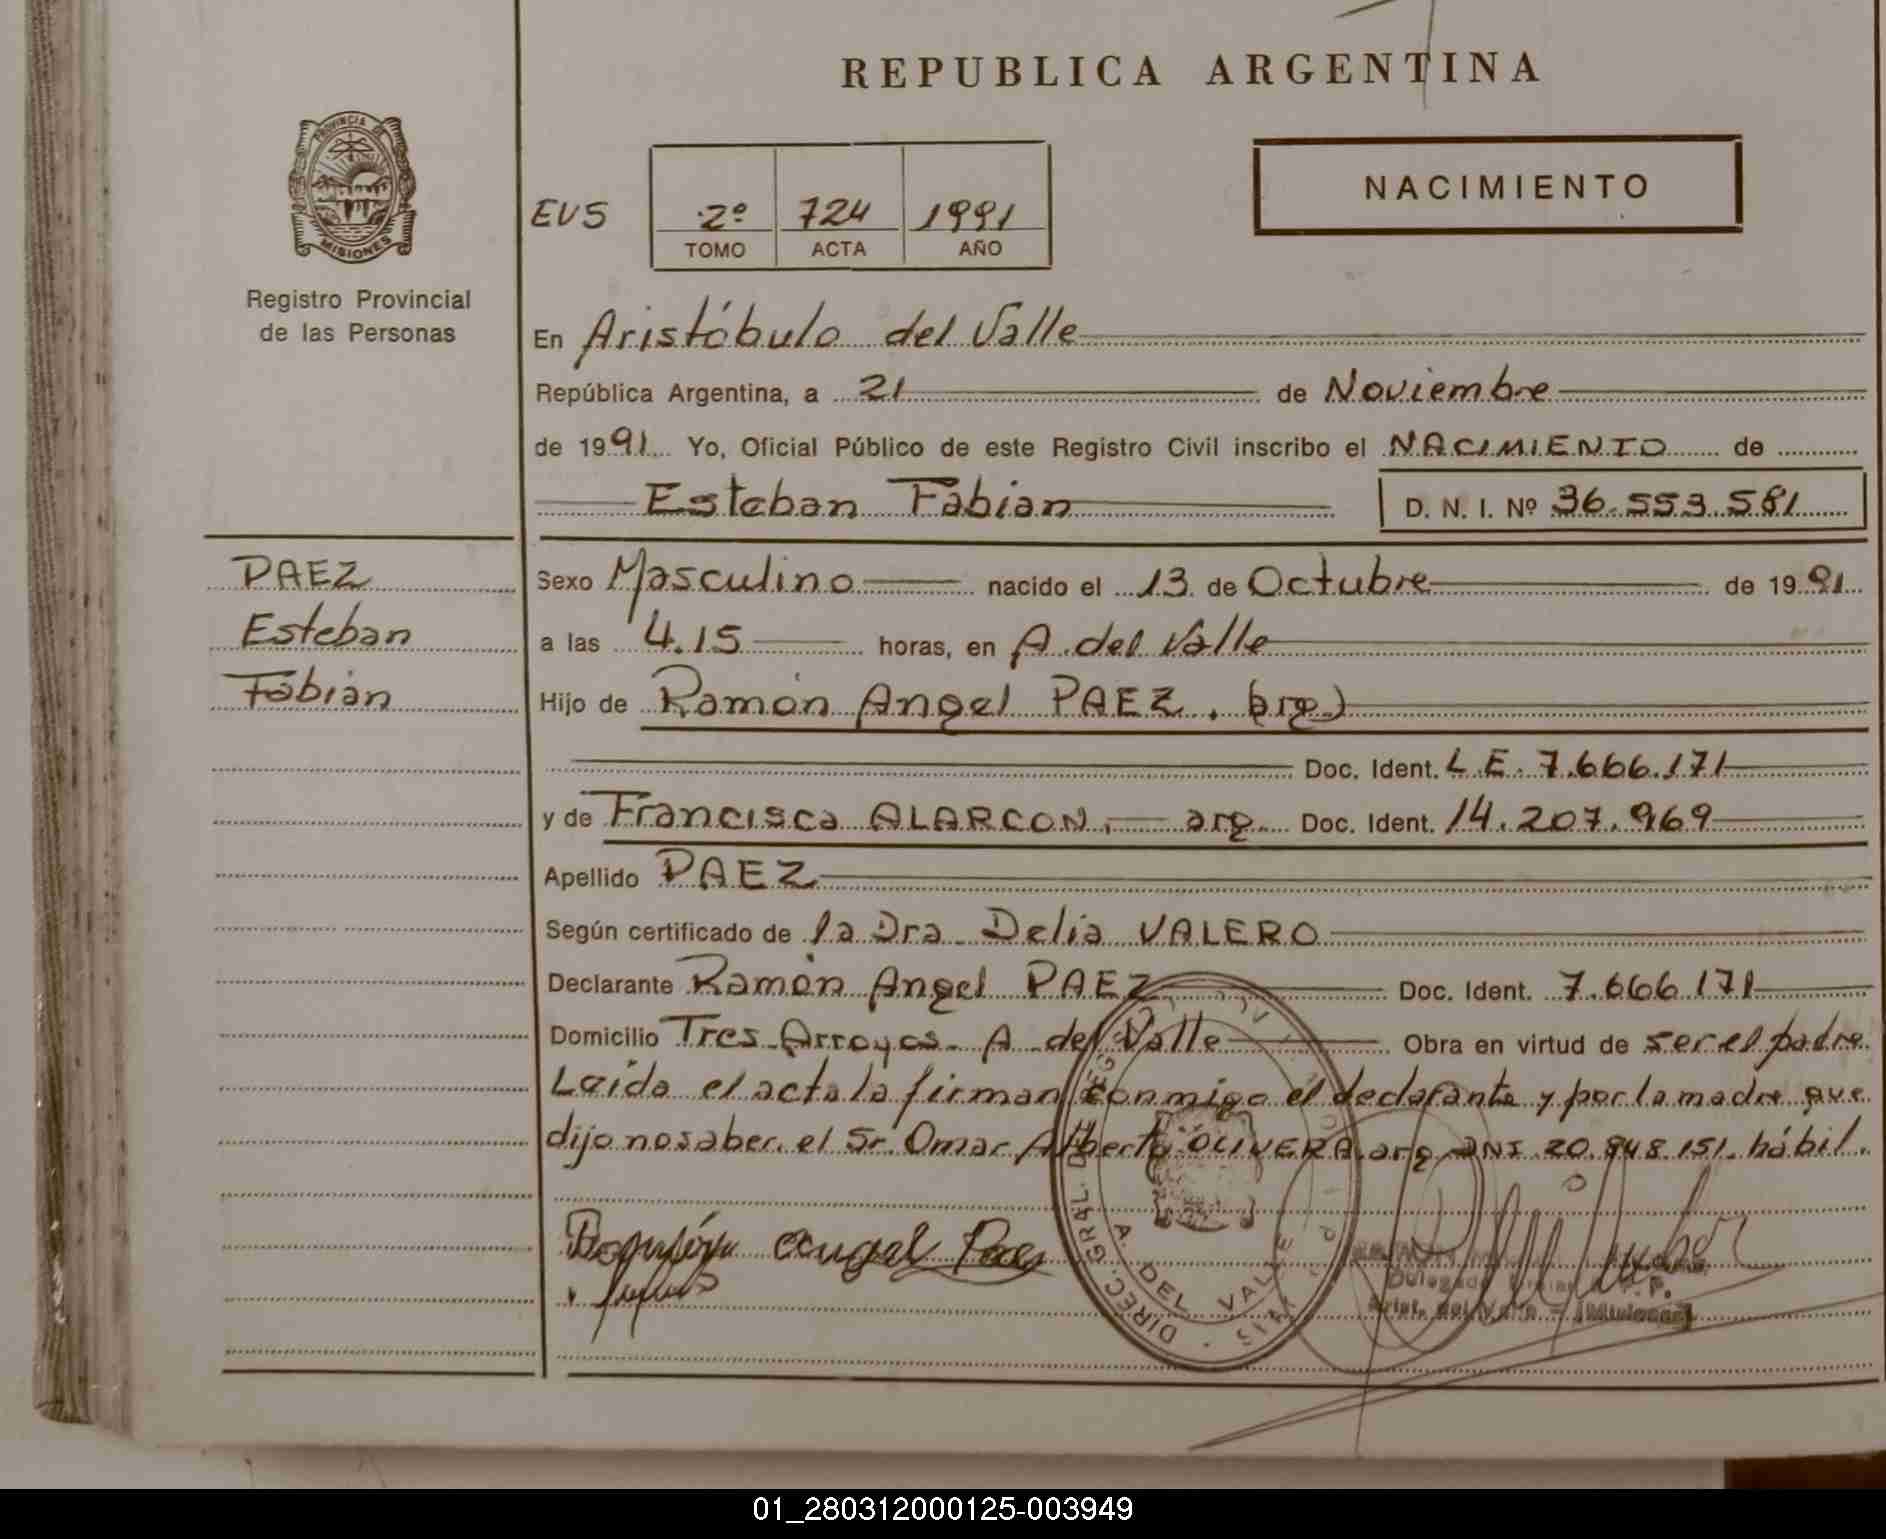 REPUBLICA ARGENTINA
PROVINCIA DE
MISIONES
Registro Provincial
de las Personas
NACIMIENTO
EVS 2º 724 1991
TOMO ACTA AÑO
En Aristóbulo del Valle
República Argentina, a 21 de Noviembre
de 1991 Yo, Oficial Público de este Registro Civil inscribo el NACIMIENTO de
Esteban Fabian D. N. I. Nº 36.553.581
PAEZ
Esteban
Fabian
Sexo Masculino nacido el 13 de Octubre de 1991
a las 4.15 horas, en A. del Valle
Hijo de Ramón Angel PAEZ. (arg.)
Doc. Ident. L.E. 7.666.171
y de Francisca ALARCON. arg. Doc. Ident. 14.207.969
Apellido PAEZ
Según certificado de la Dra. Delia VALERO
Declarante Ramón Angel PAEZ Doc. Ident. 7.666.171
Domicilio Tres Arroyos. A. del Valle Obra en virtud de ser el padre.
Leida el acta la firman conmigo el declarante y por la madre que
dijo no saber. el Sr. Omar Alberto OLIVERA arg DNI 20.848.151. hábil.
Ramón Angel Paez
DIREC. GRAL. DE
A. DEL VALLE
Delegado
Arist. del Valle - (Misiones)
01_280312000125-003949